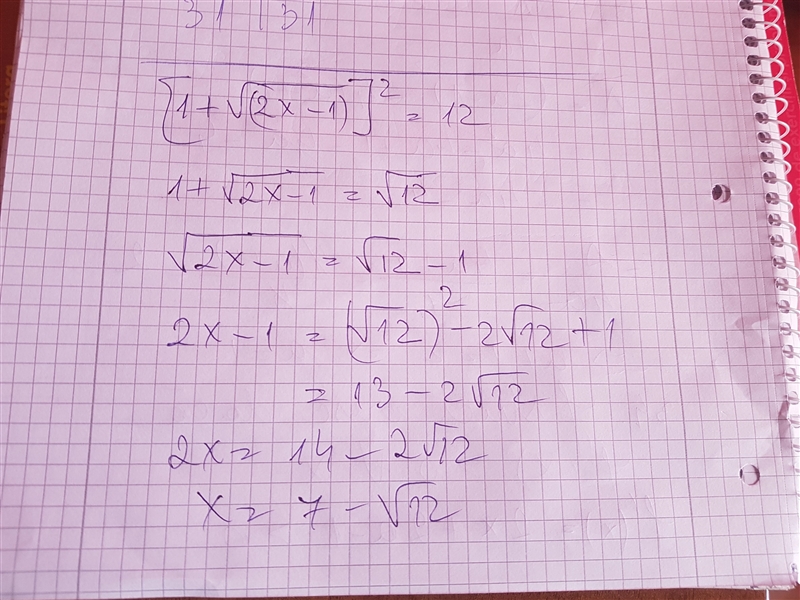 31 | 31
[1+√(2x-1)]² = 12
1+√2x-1 = √12
√2x-1 = √12 -1
2x-1 = (√12)² -2√12 +1
= 13 - 2√12
2x = 14 - 2√12
x = 7 - √12